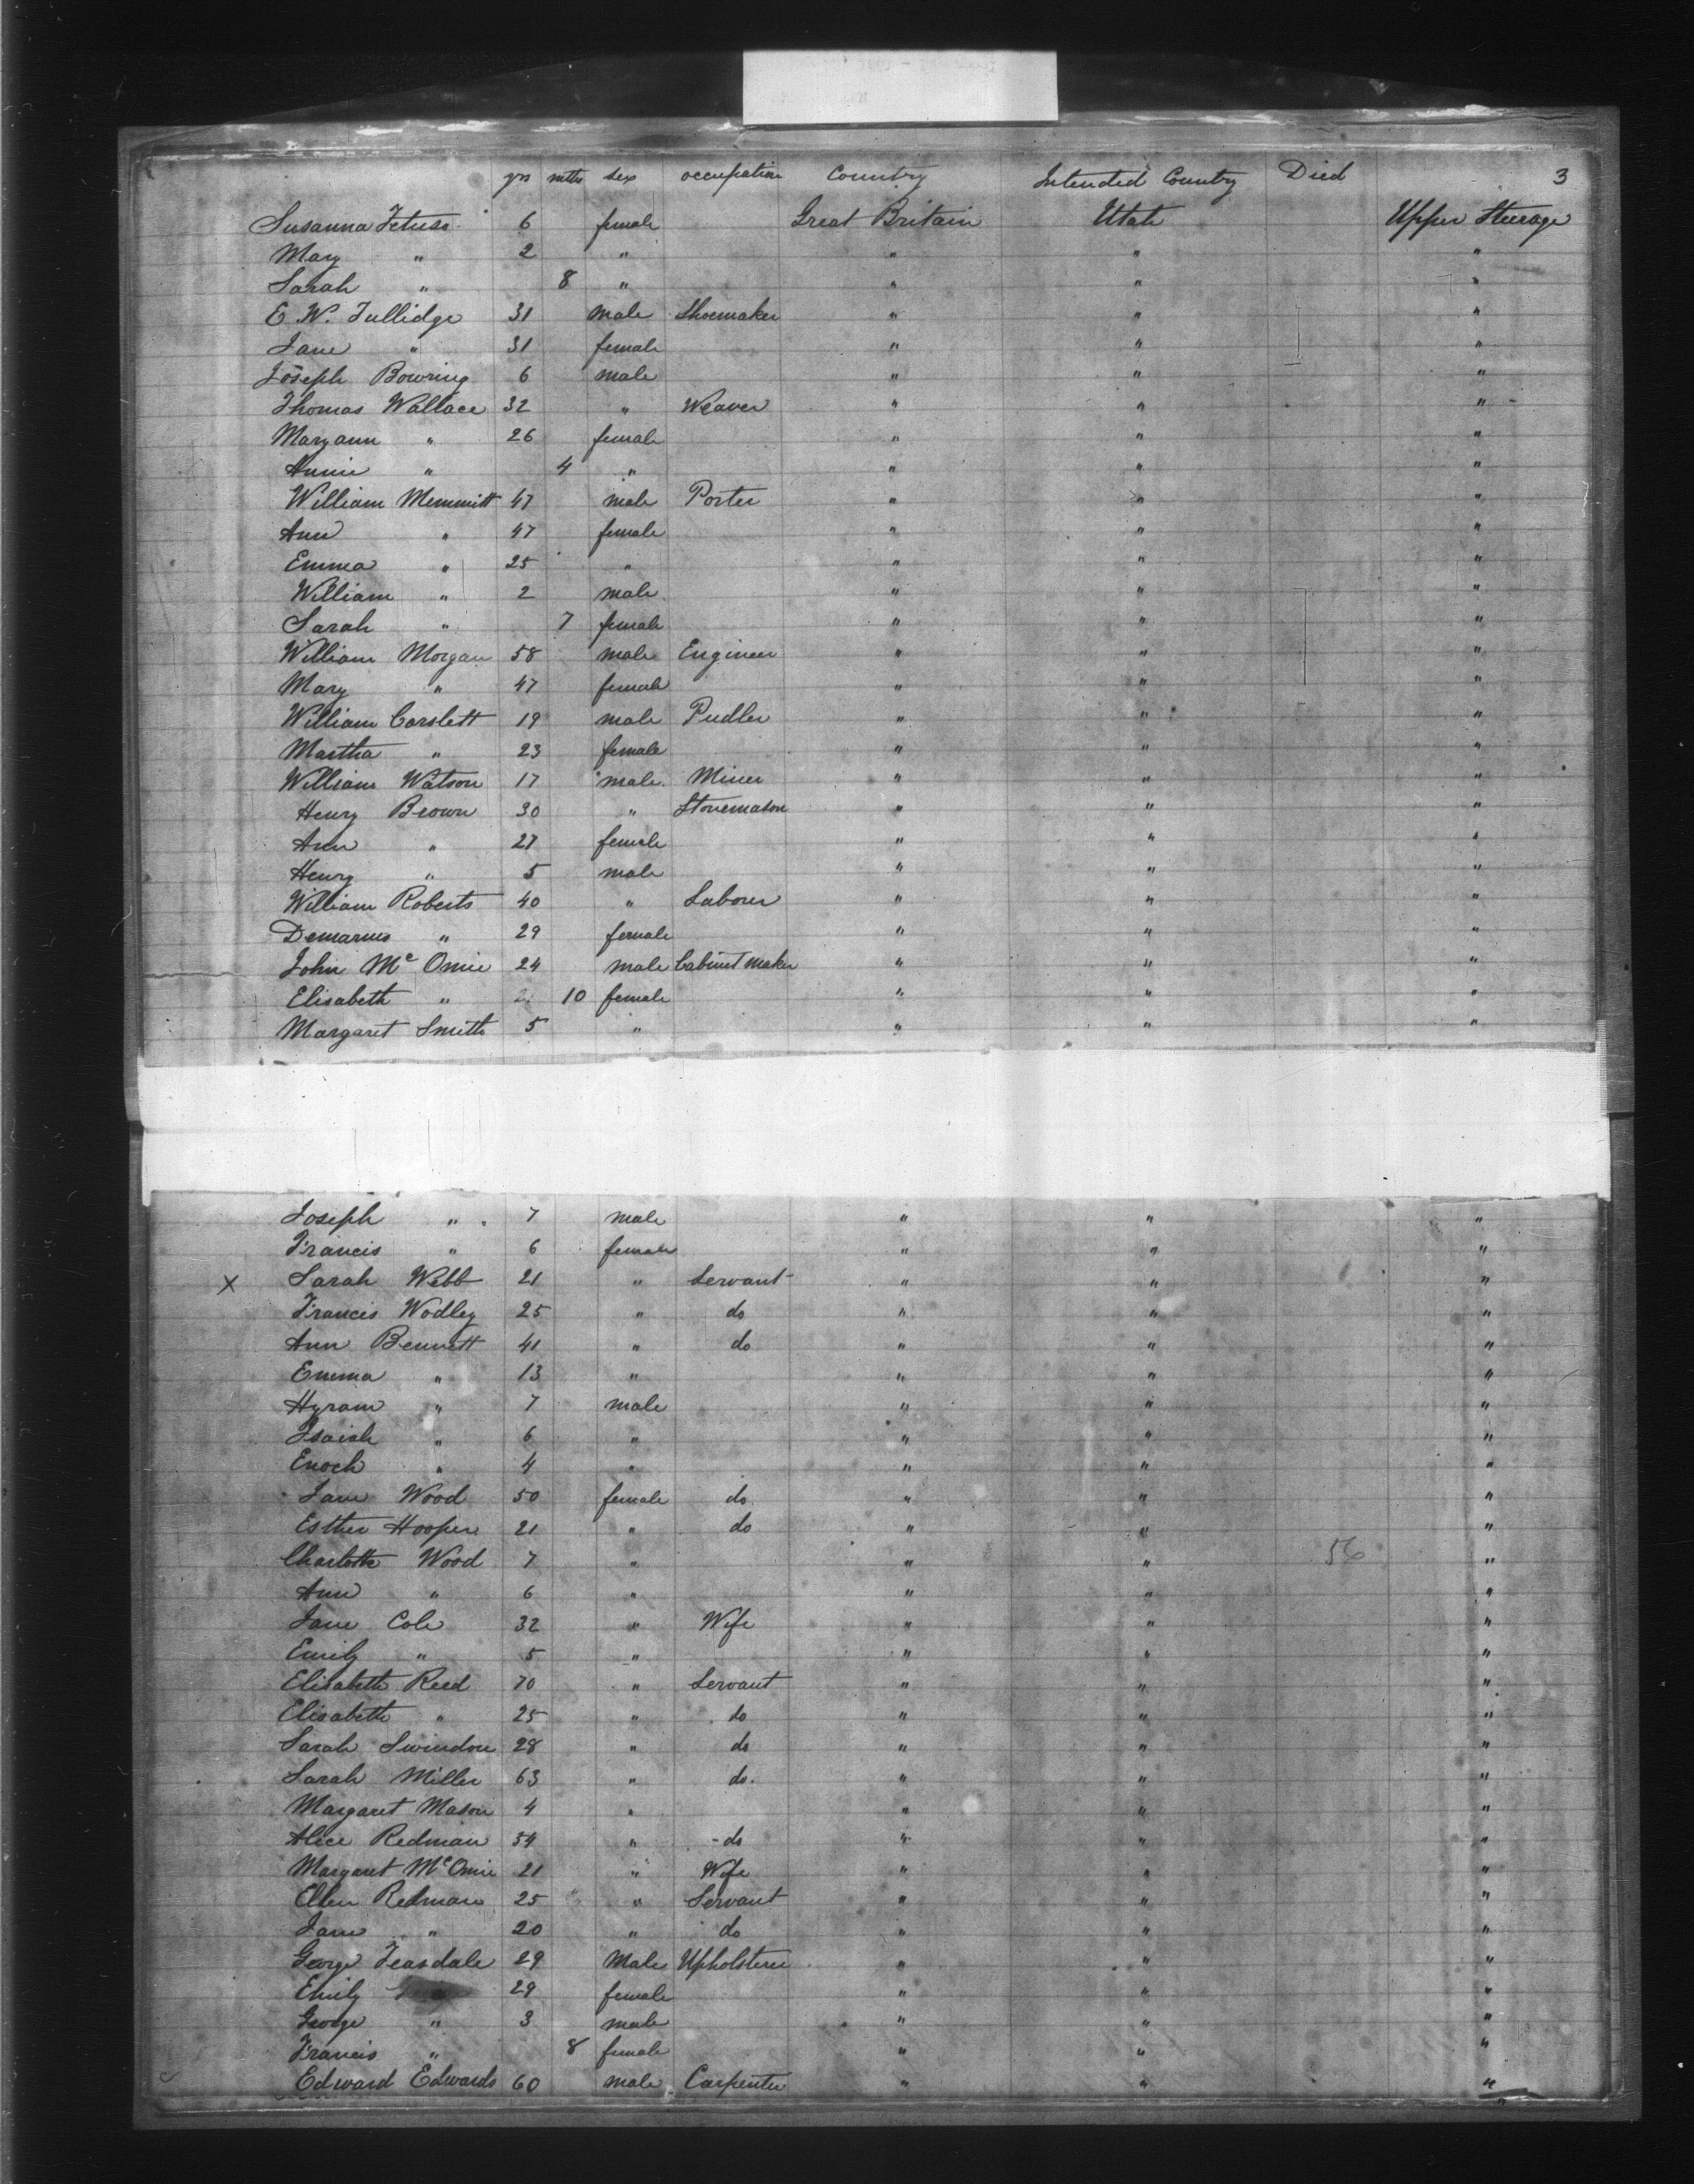 yrs mths sex occupation Country Intended Country Died 3
Susanna 6 female Great Britain Utah Upper Steerage
Mary " 2 " " " "
Sarah " 8 " " " "
E. W. Tullidge 31 male Shoemaker " " "
Jane " 31 female " " "
Joseph Bowring 6 male " " "
Thomas Wallace 32 " Weaver " " "
Maryann " 26 female " " "
Annie " 4 " " " "
William Memmitt 47 male Porter " " "
Ann " 47 female " " "
Emma " 25 " " " "
William " 2 male " " "
Sarah " 7 female " " "
William Morgan 58 male Engineer " " "
Mary " 47 female " " "
William Corslett 19 male Pudler " " "
Martha " 23 female " " "
William Watson 17 male Miner " " "
Henry Brown 30 " Stonemason " " "
Ann " 27 female " " "
Henry " 5 male " " "
William Roberts 40 " Laborer " " "
Demarius " 29 female " " "
John Mc Omie 24 male Cabinet maker " " "
Elisabeth " 10 female " " "
Margaret Smith 5 " " " "
Joseph " 7 male " " "
Francis " 6 female " " "
X Sarah Webb 21 " Servant " " "
Francis Wodley 25 " do " " "
Ann Bennett 41 " do " " "
Emma " 13 " " " "
Hyram " 7 male " " "
Isaiah " 6 " " " "
Enoch " 4 " " " "
Jane Wood 50 female do " " "
Esther Hooper 21 " do " " "
Charlotte Wood 7 " " " 56 "
Ann " 6 " " " "
Jane Cole 32 " Wife " " "
Emily " 5 " " " "
Elisabeth Reed 70 " Servant " " "
Elisabeth " 25 " do " " "
Sarah Swindon 28 " do " " "
Sarah Miller 63 " do. " " "
Margaret Mason 4 " " " "
Alice Redman 54 " do " " "
Margaret McOmie 21 " Wife " " "
Ellen Redman 25 " Servant " " "
Jane " 20 " do " " "
George Teasdale 29 Male Upholsterer " " "
Emily 29 female " " "
George " 3 male " " "
Francis " 8 female " " "
Edward Edwards 60 male Carpenter " " "